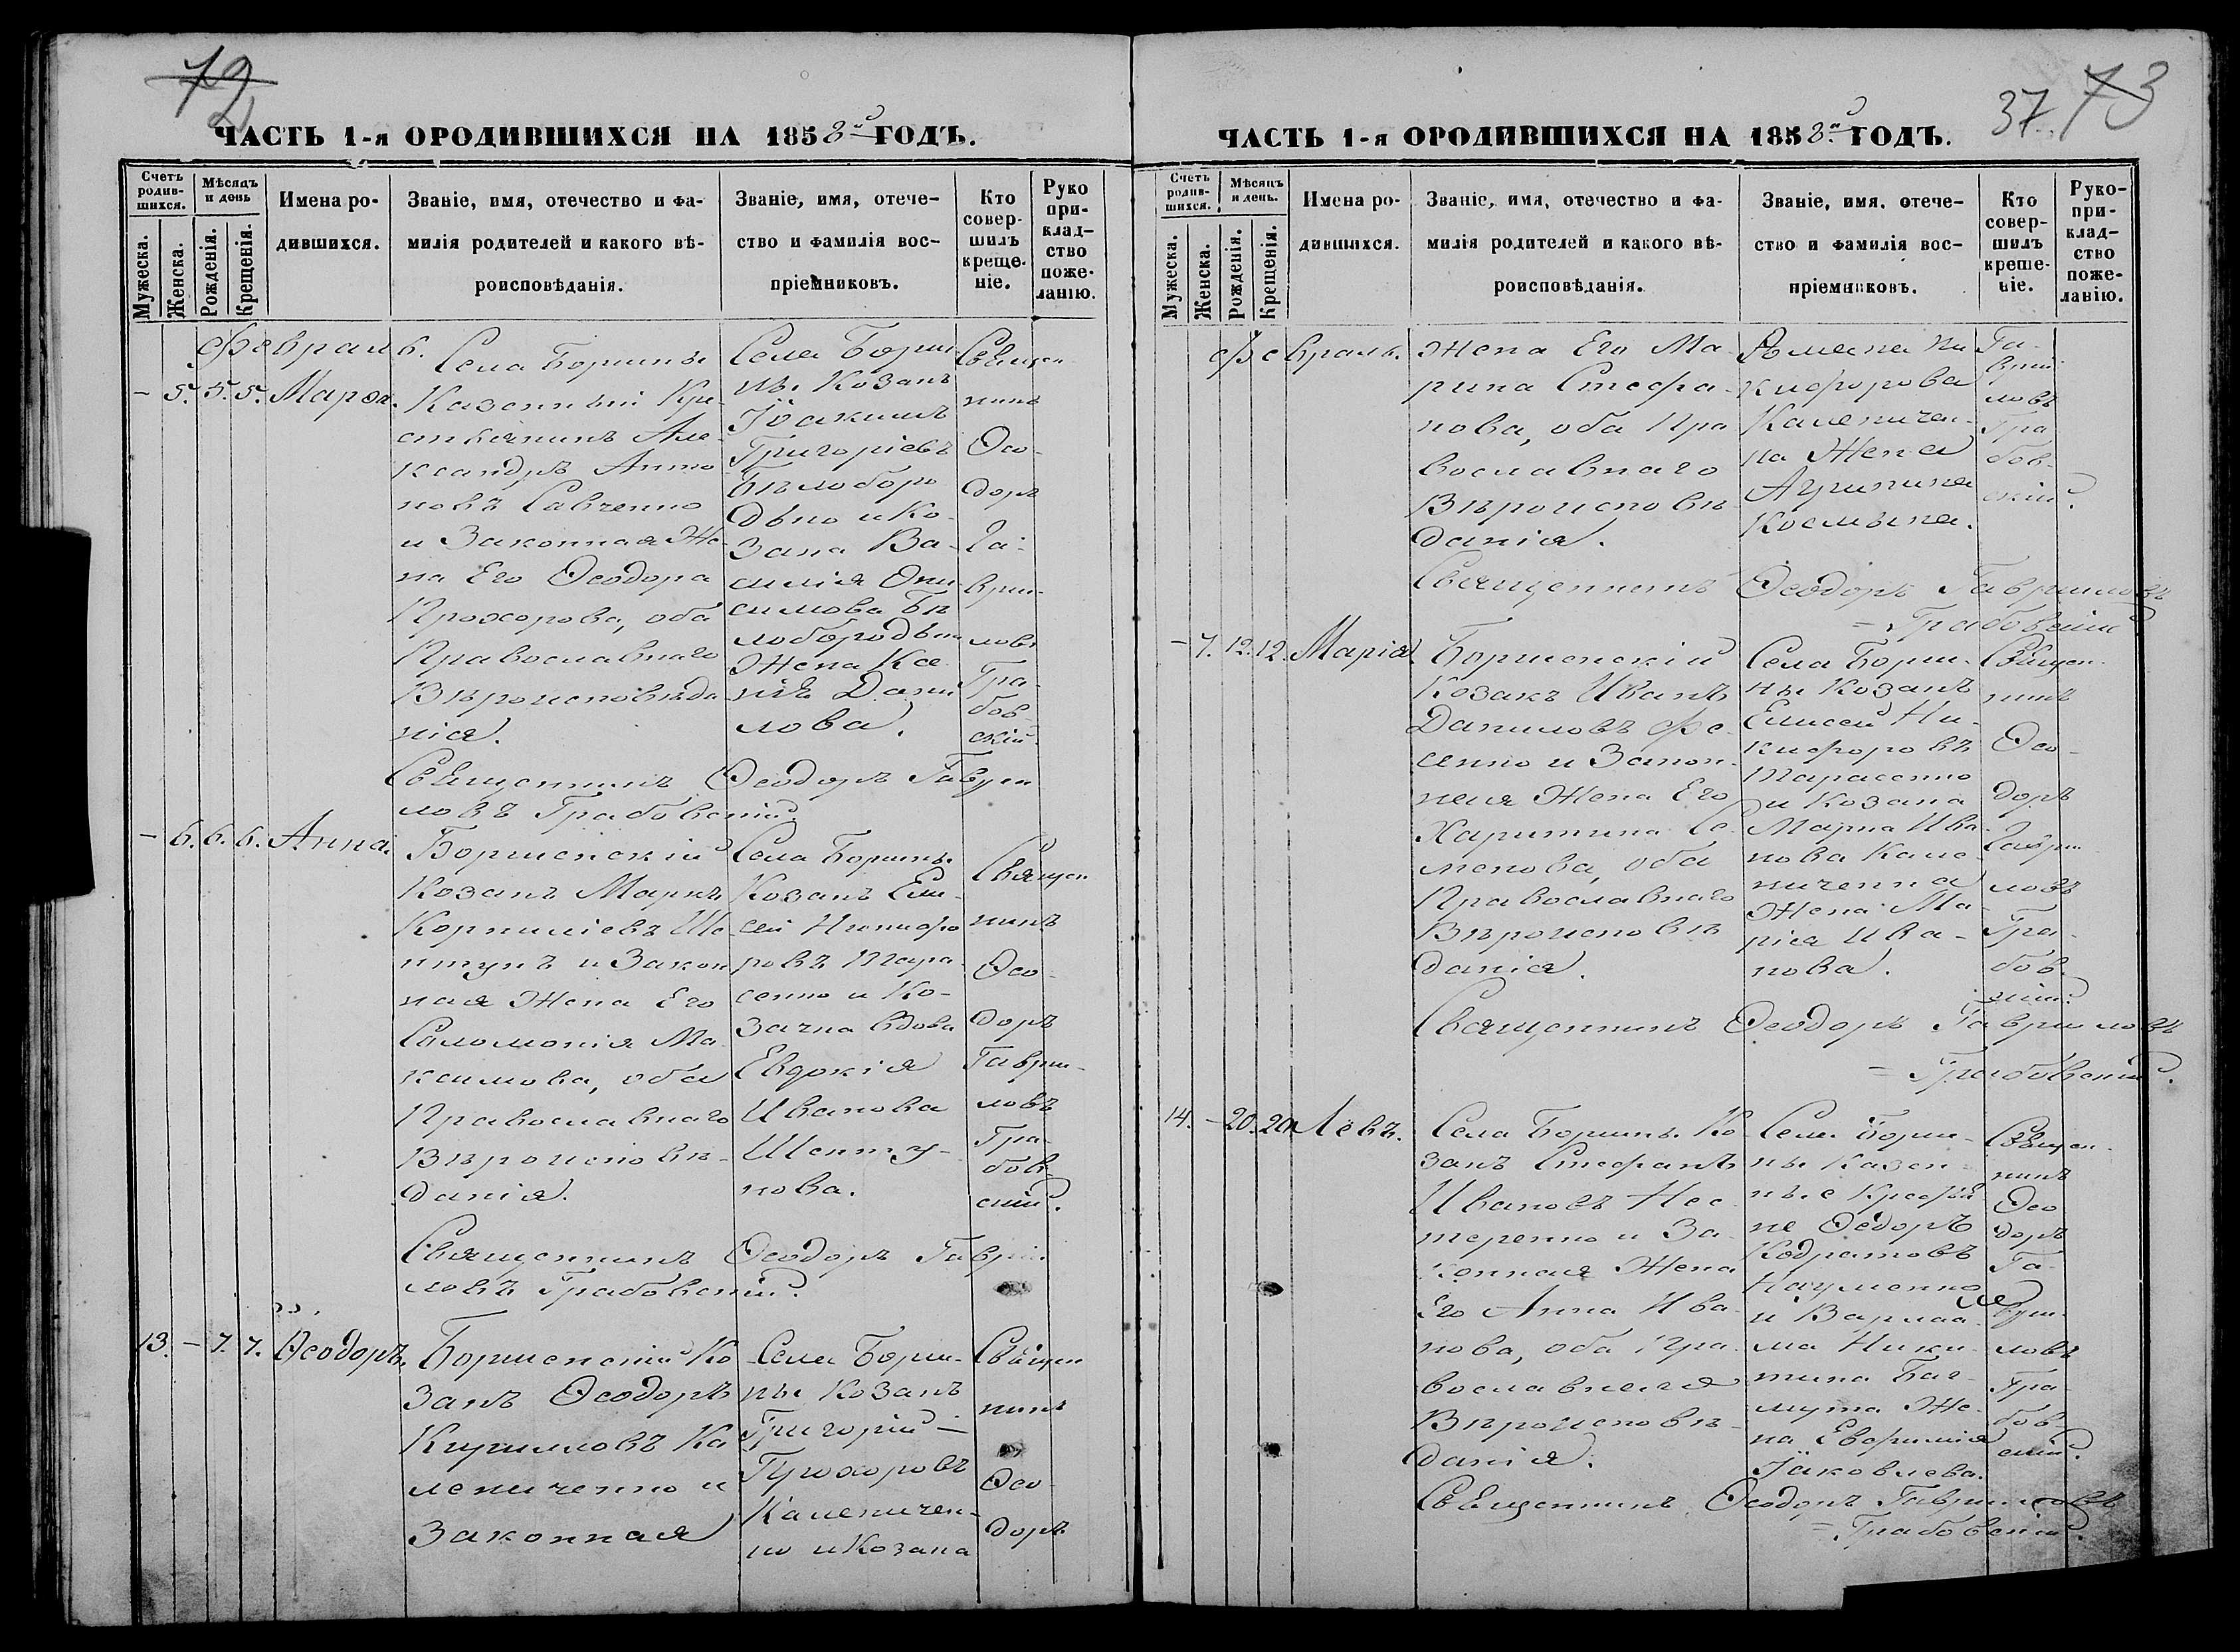 72
ЧАСТЬ 1-я О РОДИВШИХСЯ НА 1858й ГОДЪ.
Счетъ родив-шихся.
Мѣсяцъ и день
Имена ро-
дившихся.
Званіе, имя, отечество и фа-
милія родителей и какого вѣ-
роисповѣданія.
Званіе, имя, отече-
ство и фамилія вос-
пріемниковъ.
Кто
совер-
шилъ
креще-
ніе.
Руко
при-
клад-
ство
поже-
ланію.
Мужеска.
Женска.
Рожденія.
Крещенія.
Февраль.
- 5. 5. 5. Марѳа.
Села Борины
Казенный Кре-
стьянинъ Але-
ксандръ Анто
новъ Савченко
и Законная Же-
на Его Ѳеодора
Прохорова, оба
Православнаго
Вѣроисповѣда
нія.
Села Бори
ны Козакъ
Іоакимъ
Григоріевъ
Бѣлоборо
дько и Ко-
зака Ва-
силія Они-
симова Бѣ
лобородьки
Жена Ксе
нія Дани
лова.
Священ
никъ
Ѳео-
доръ
Га-
ври-
ловъ
Гра-
бов-
скій.
Священникъ Ѳеодоръ Гаври
ловъ Грабовскій.
- 6. 6. 6. Анна.
Бориенскій
Козакъ Маркъ
Корниліевъ Ше
птунъ и Закон
ная Жена Его
Соломонія Ма
ксимова, оба
Православнаго
Вѣроисповѣ-
данія.
Села Борины
Козакъ Ели-
сей Никифо
ровъ Тара-
сенко и Ко-
зачка вдова
Евдокія
Иванова
Шепту-
нова.
Священ
никъ
Ѳео-
доръ
Гаври-
ловъ
Гра-
бов-
скій.
Священникъ Ѳеодоръ Гаври
ловъ Грабовскій.
13. - 7. 7. Ѳеодоръ.
Бориенскій Ко
закъ Ѳеодоръ
Кирилловъ Ка
лениченко и
Законная
Села Бори-
ны Козакъ
Григорій
Прохоровъ
Каленичен-
ко и Козака
Священ
никъ
Ѳео
доръ
37. 73
ЧАСТЬ 1-я О РОДИВШИХСЯ НА 1858й ГОДЪ.
Счетъ родив-шихся.
Мѣсяцъ и день.
Имена ро-
дившихся.
Званіе, имя, отечество и фа-
милія родителей и какого вѣ-
роисповѣданія.
Званіе, имя, отече-
ство и фамилія вос-
пріемниковъ.
Кто
совер-
шилъ
креще-
ніе.
Руко-
при-
клад-
ство
поже-
ланію.
Мужеска.
Женска.
Рожденія.
Крещенія.
Февраль.
Жена Его Ма-
рина Стефа-
нова, оба Пра
вославнаго
Вѣроисповѣ
данія.
Романа Ни
кифорова
Каленичен-
ка Жена
Агрипина
Космына.
Га-
ври
ловъ
Гра
бов-
скій.
Священникъ Ѳеодоръ Гавриловъ
= Грабовскій
- 7. 12. 12. Марія.
Бориенскій
Козакъ Иванъ
Даниловъ Фе-
сенко и Закон-
ная Жена Его
Харитина Се-
менова, оба
Православнаго
Вѣроисповѣ
данія.
Села Бори-
ны Козакъ
Елисей Ни-
кифоровъ
Тарасенко
и Козака
Марка Ива
нова Кале
ниченка
Жена Ма-
рія Ива-
нова.
Священ-
никъ
Ѳео-
доръ
Гаври
ловъ
Гра-
бов-
скій.
Священникъ Ѳеодоръ Гавриловъ
= Грабовскій.
14. - 20. 20. Левъ.
Села Борины Ко
закъ Стефанъ
Ивановъ Нес
теренко и За-
конная Жена
Его Анна Ива
нова, оба Пра-
вославнаго
Вѣроисповѣ-
данія.
Села Бори-
ны Казен
ные
не Ѳедоръ
Кодратовъ
Науменко
и Варлаа-
ма Ники-
тина Баг-
мута Же-
на Евфимія
Іаковлева.
Священ-
никъ
Ѳео
доръ
Га-
ври-
ловъ
Гра-
бов-
скій.
Священникъ Ѳеодоръ Гавриловъ
= Грабовскій.